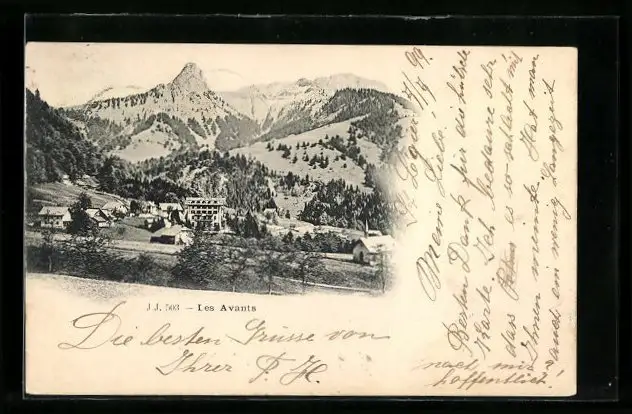 J J. 503 – Les Avants
Die besten Grüsse von
Ihrer F. H.
Meine Liebe!
Besten Dank für die hübsche
Karte. Ich bedaure sehr
dass es so schlecht mit
Ihnen Hat man
auch ein wenig
nach mir
hoffentlich!